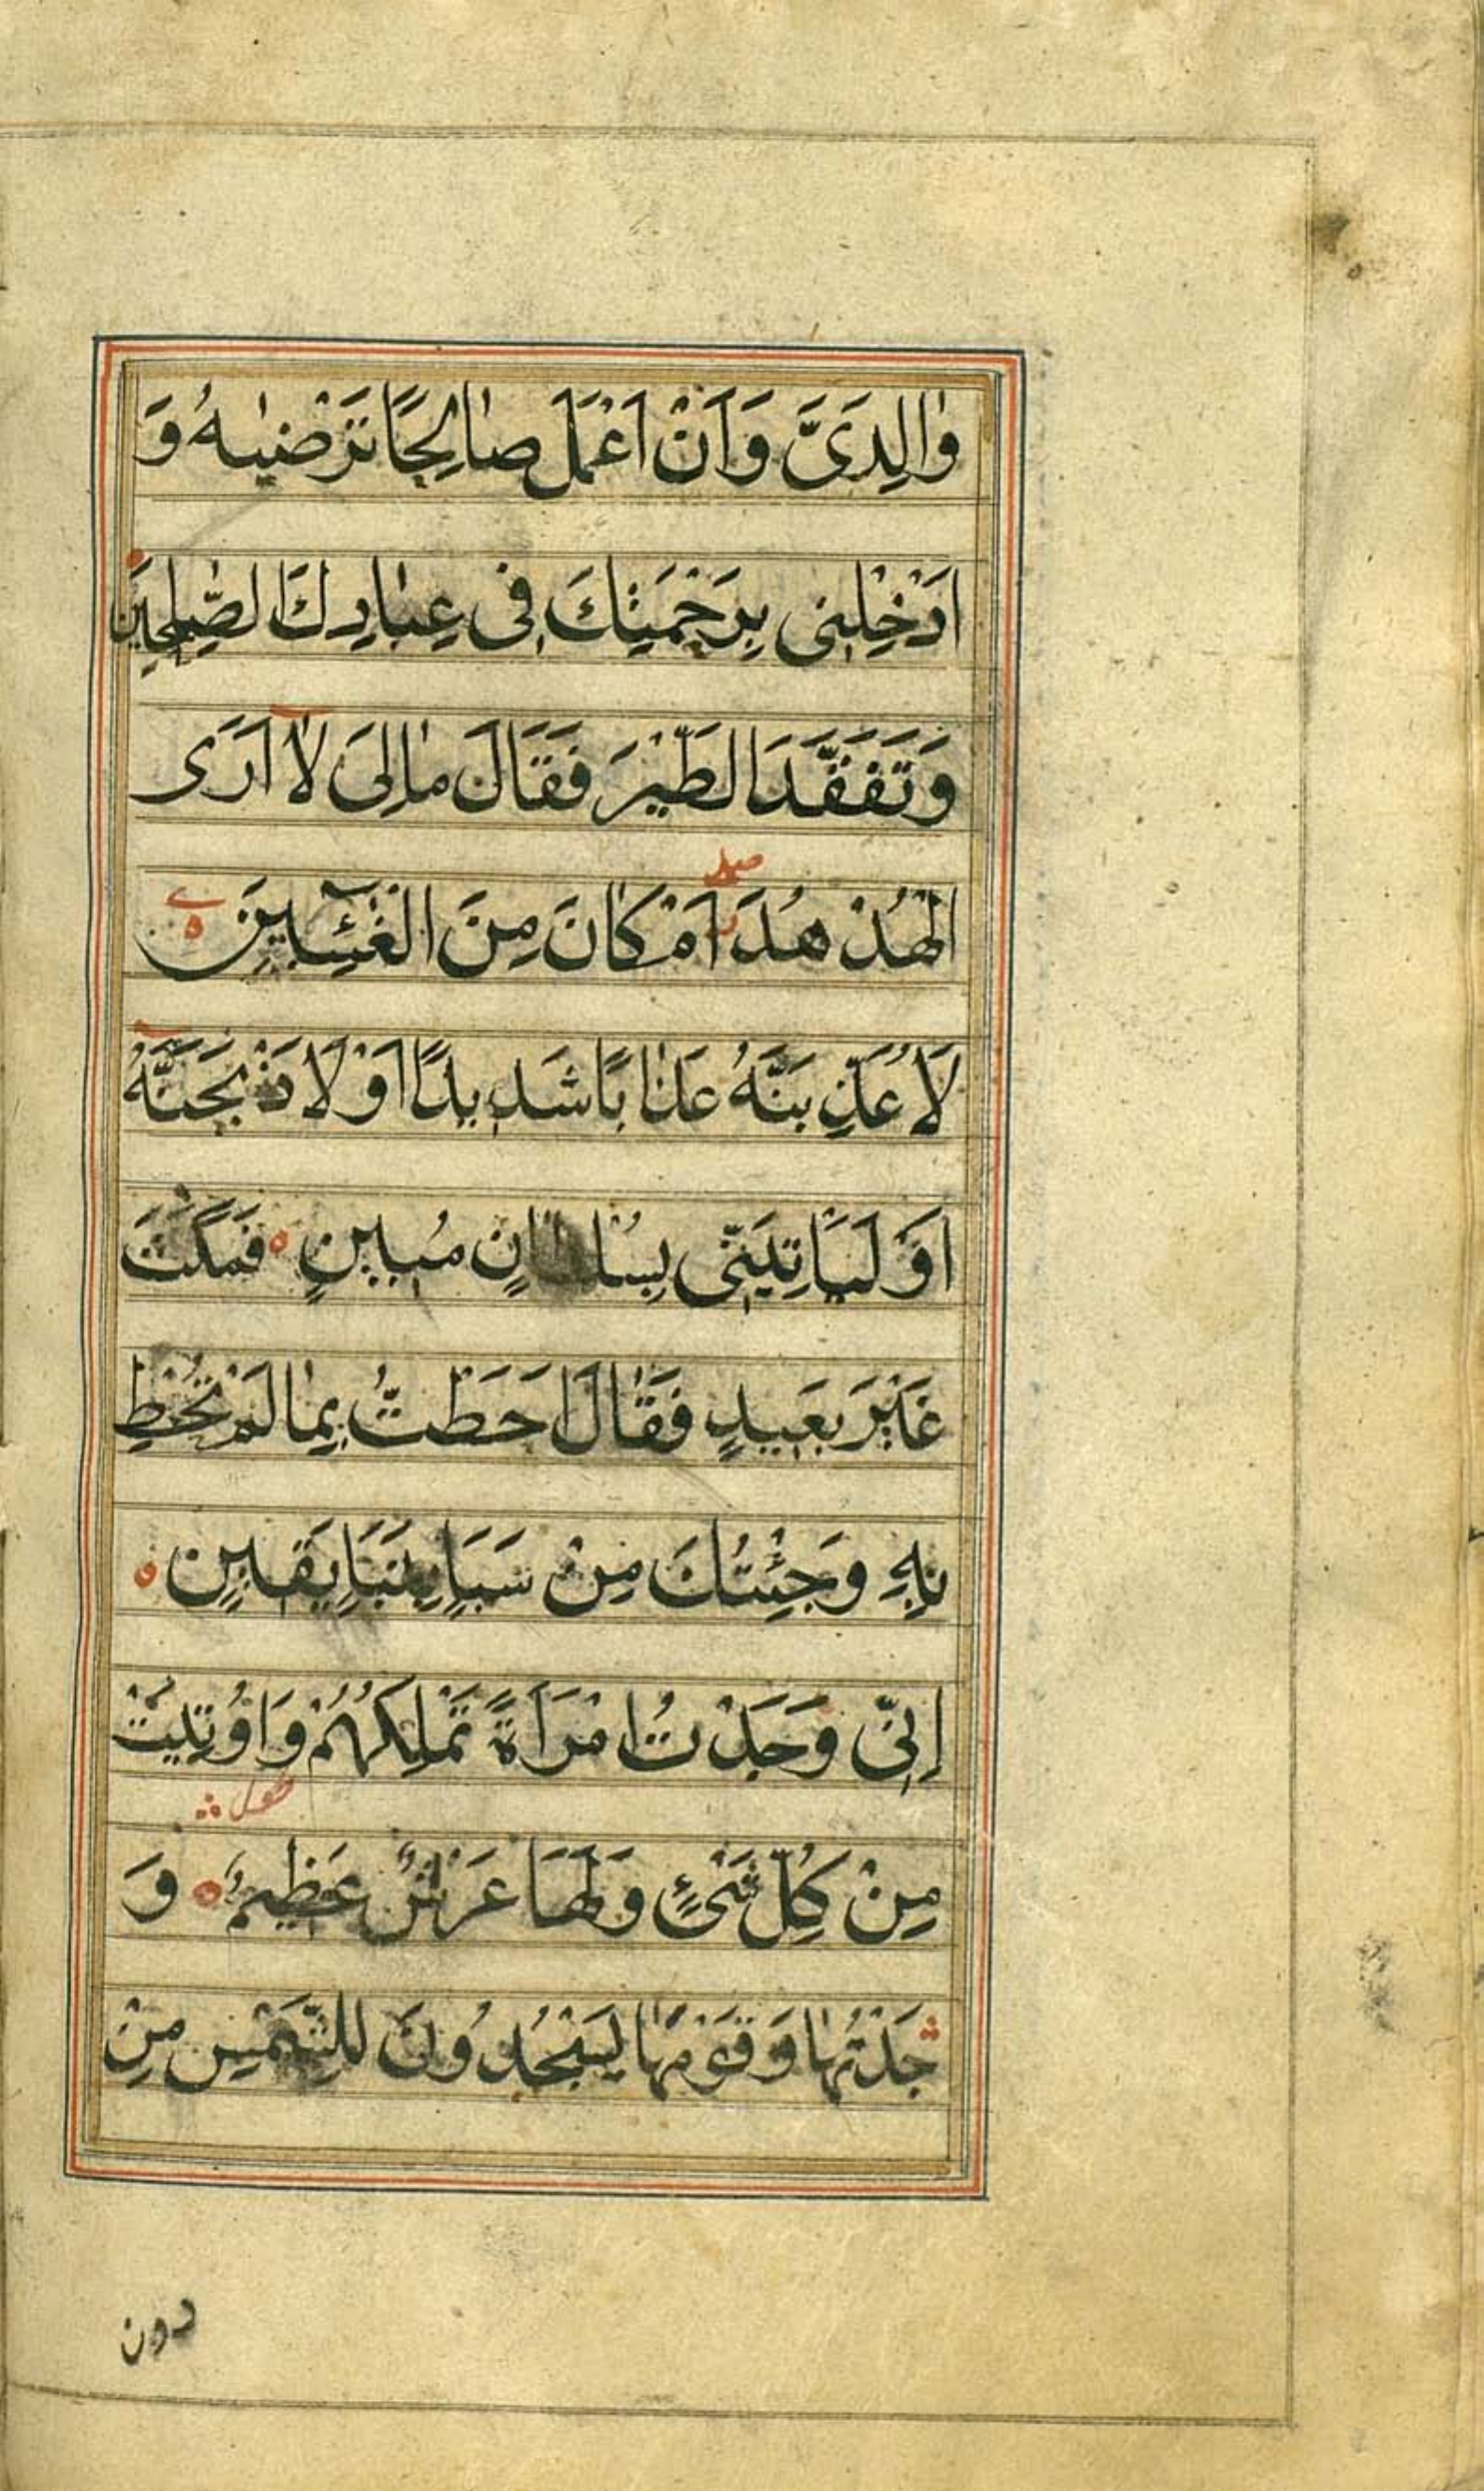 وٰالِدَىَّ وَاَنْ اَعْمَلَ صٰالِحًا تَرْضٰيهُ وَ
اَدْخِلْنى بِرَحْمَتِكَ فى عِبٰادِكَ الصّٰلِحينَ
وَتَفَقَّدَ الطَّيْرَ فَقَالَ مٰالِىَ لٰا اَرَى
الْهُدْهُدَ اَمْ كٰانَ مِنَ الْغٰٓئِبينَ ه
صلے
لَاُعَذِّبَنَّهُ عَذٰابًا شَديدًا اَوْ لَاَذْبَحَنَّهُ
اَوْ لَيَاْتِيَنّى بِسُلْطٰانٍ مُبينٍ ه فَمَكَثَ
غَيْرَ بَعيدٍ فَقٰالَ اَحَطْتُ بِمٰا لَمْ تُحِطْ
بِهِ وَجِئْتُكَ مِنْ سَبَاٍ بِنَبَاٍ يَقينٍ ه
اِنّى وَجَدْتُ امْرَاَةً تَمْلِكُهُمْ وَاُوتِيَتْ
مِنْ كُلِّ شَىْءٍ وَلَهَا عَرْشٌ عَظيمٌ ه وَ
جَدْتُهٰا وَقَوْمَهٰا يَسْجُدُونَ لِلشَّمْسِ مِنْ
دون